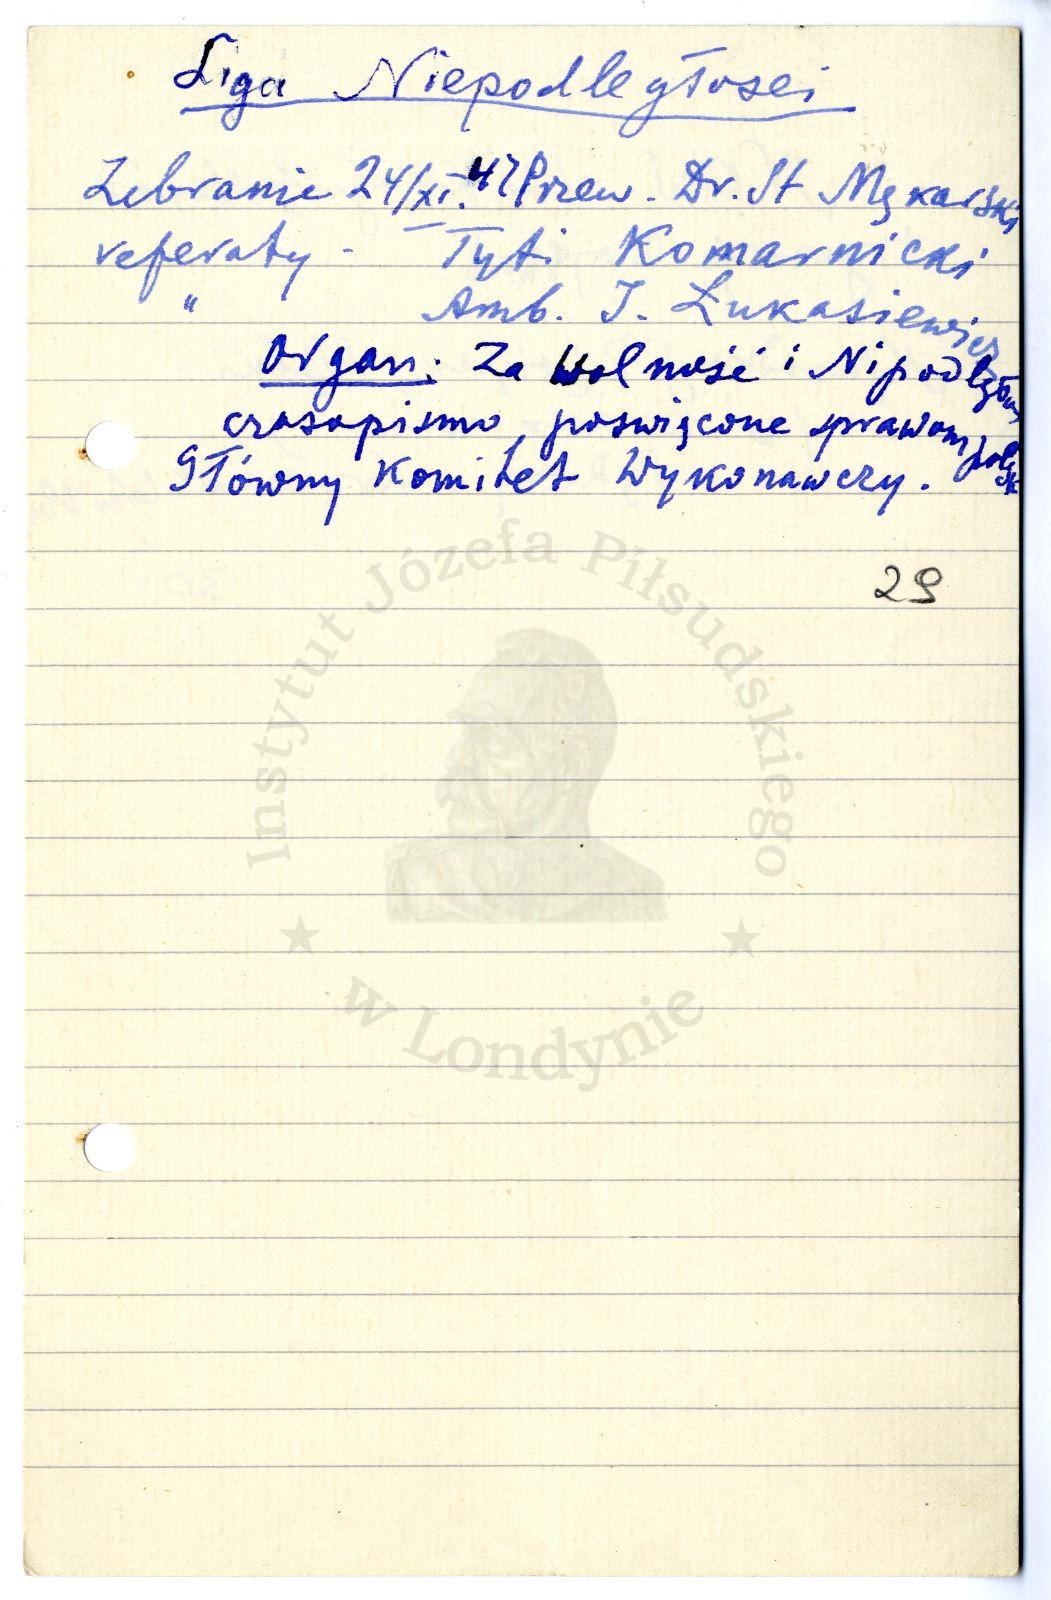 Liga Niepodległosci
Zebranie 24/XI. 47 Przew. Dr. St Mękarski
referaty - Tyt. Komarnicki
" Amb. J. Łukasiewicz
Organ: Za Wolność i Nipodległość
czasopismo, poswięcone sprawom polsk
Główny Komitet Wykonawczy.
29
Instytut Józefa Piłsudskiego
w Londynie